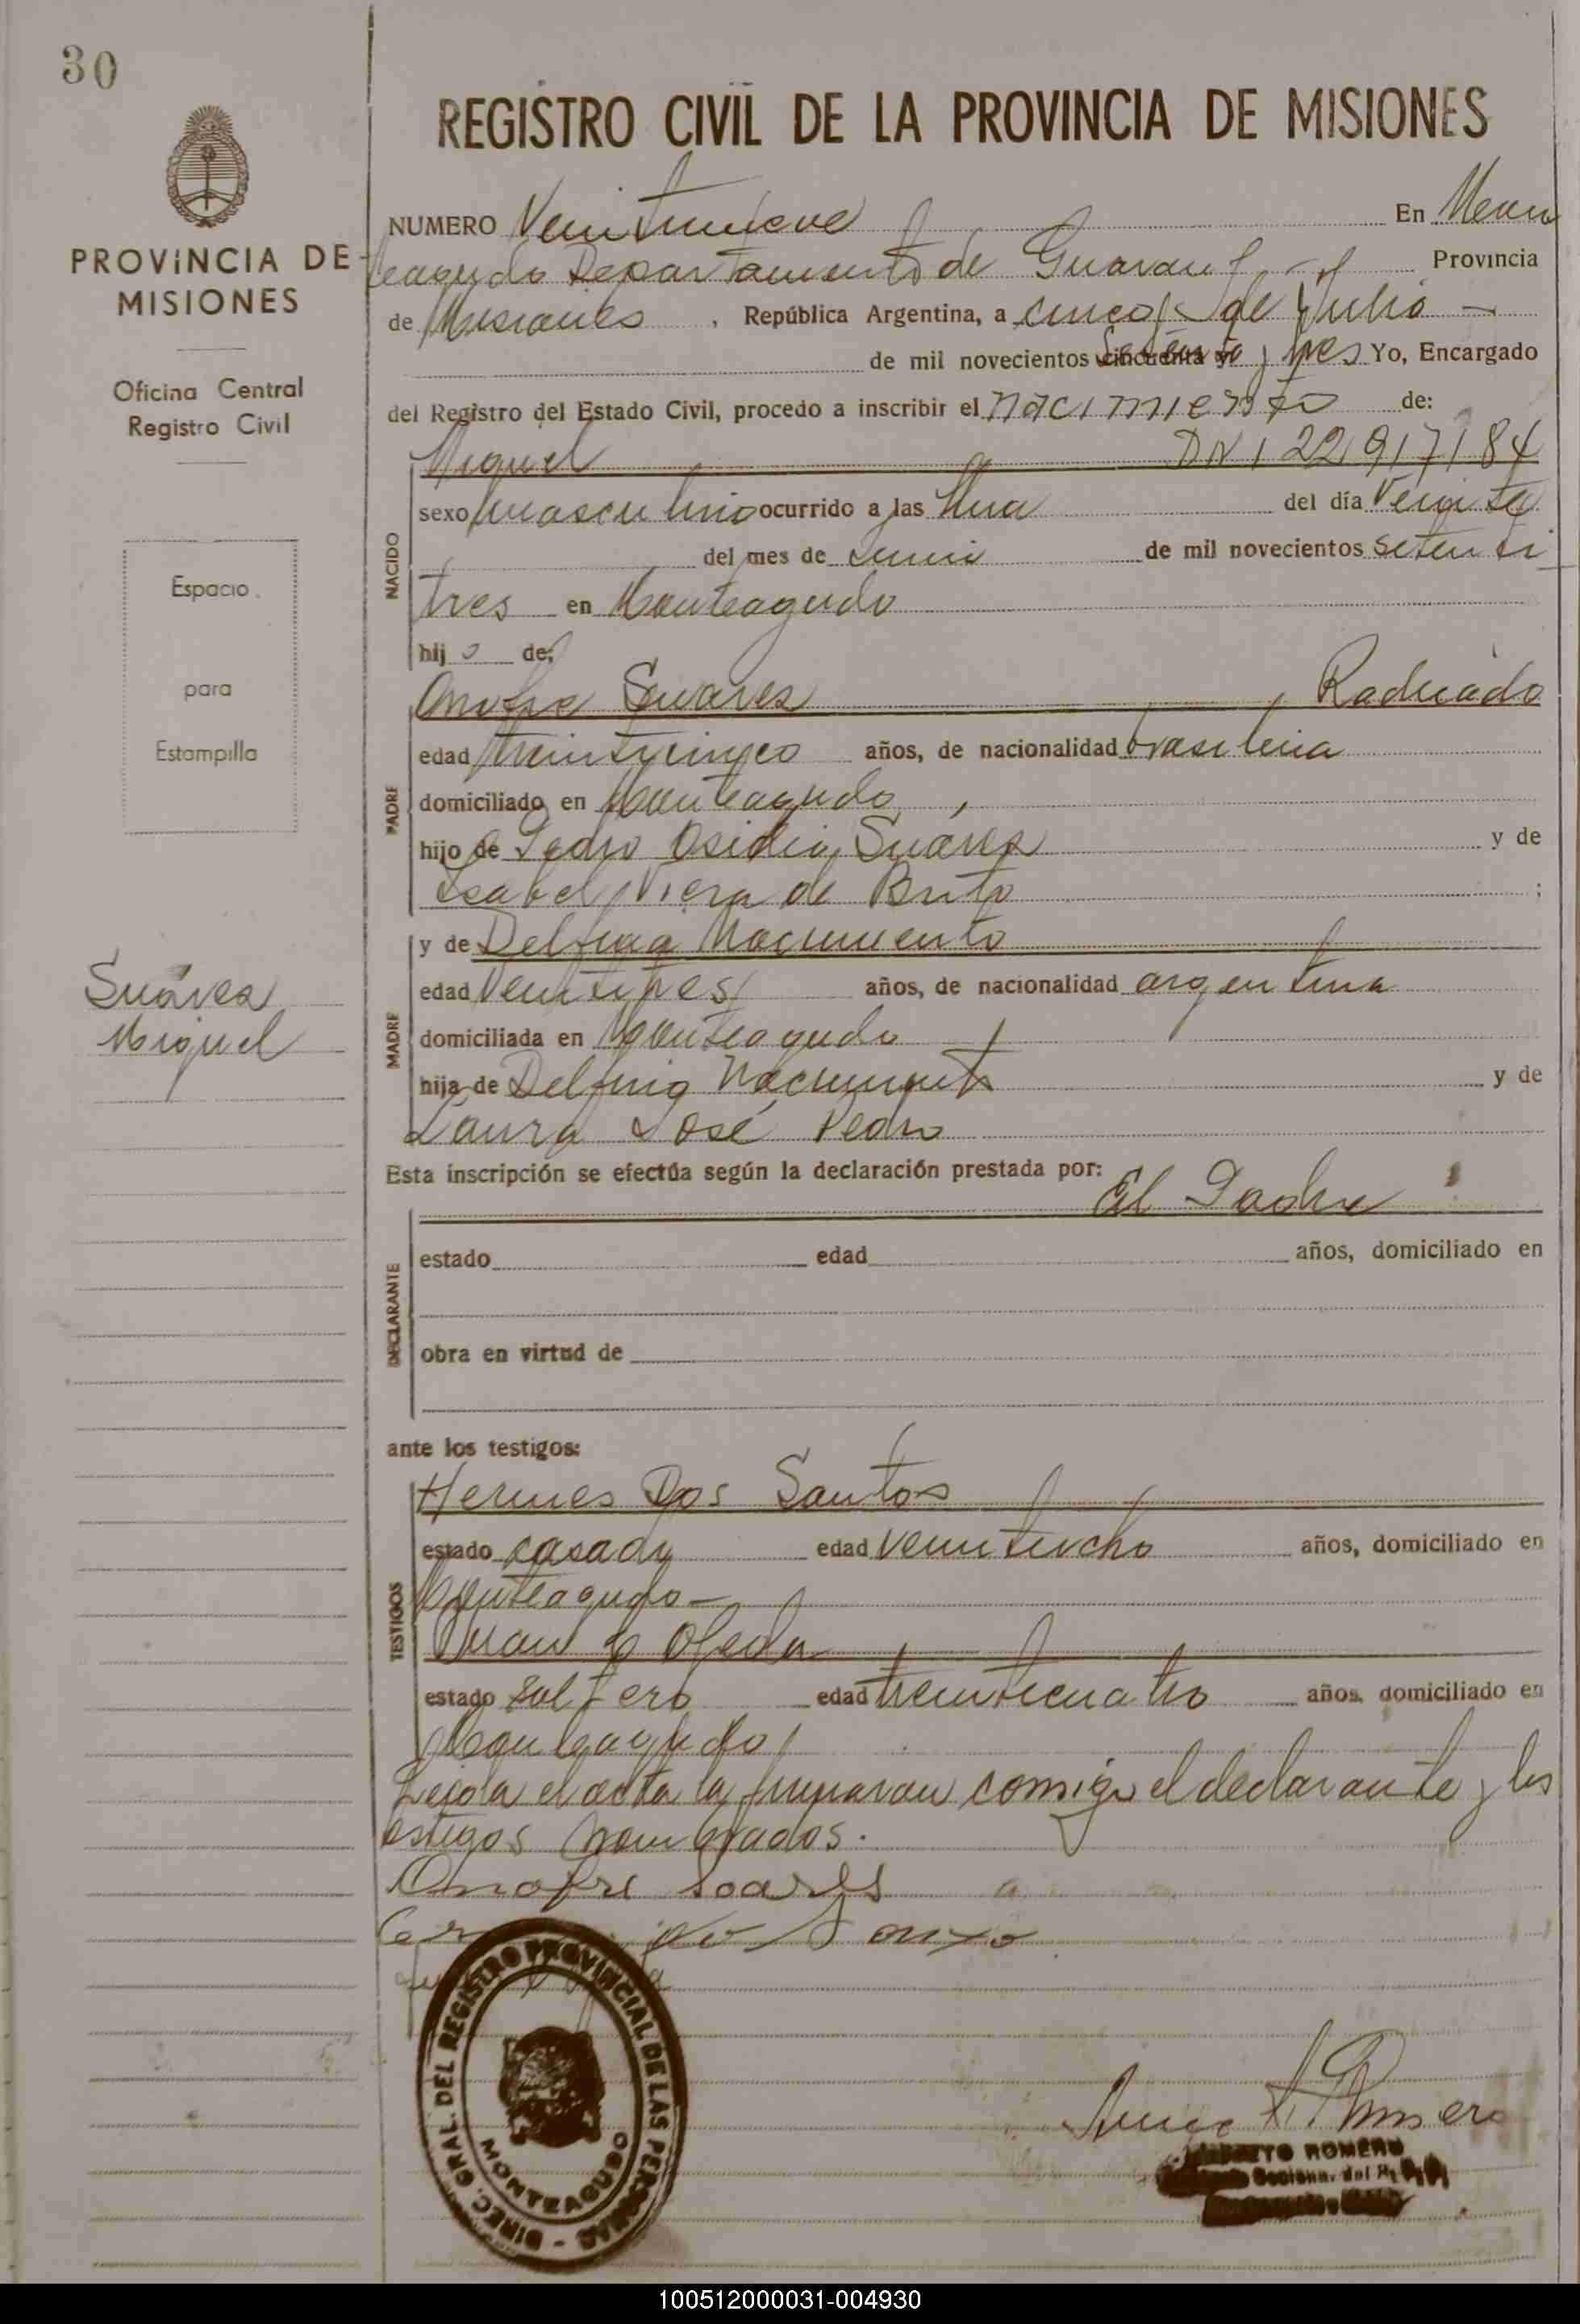 30
PROVINCIA DE
MISIONES
Oficina Central
Registro Civil
Espacio
para
Estampilla
Suárez
Miguel
REGISTRO CIVIL DE LA PROVINCIA DE MISIONES
NUMERO Veintinueve En Mon
teagudo Departamento de Guaraní Provincia
de Misiones, República Argentina, a cinco de Julio
de mil novecientos cincuenta y Setenta y tres Yo, Encargado
del Registro del Estado Civil, procedo a inscribir el nacimiento de:
Miguel DNI 22917184
NACIDO
sexo masculino ocurrido a las Una del día Veinte
del mes de Junio de mil novecientos setenti
tres en Monteagudo
hijo de:
PADRE
Onofre Suares, Radicado
edad treinticinco años, de nacionalidad brasileña
domiciliado en Monteagudo,
hijo de Pedro Osidio Suárez y de
Isabel Viera de Brito ;
MADRE
y de Delfina Nacimiento
edad Veintitres años, de nacionalidad argentina
domiciliada en Monteagudo
hija de Delfino Nacimiento y de
Laura José Pedro
Esta inscripción se efectúa según la declaración prestada por:
El Padre
DECLARANTE
estado edad años, domiciliado en
obra en virtud de
ante los testigos:
TESTIGOS
Hermes Dos Santos
estado casado edad veintiocho años, domiciliado en
Monteagudo-
Juan Ojeda
estado soltero edad treinticuatro años, domiciliado en
Monteagudo
Leída el acta la firmaran comigo el declarante y los
testigos nombrados.
Onofre Soares
DIREC. GRAL. DEL REGISTRO PROVINCIAL DE LAS PERSONAS -
MONTEAGUDO
Romero
ROMERO
100512000031-004930